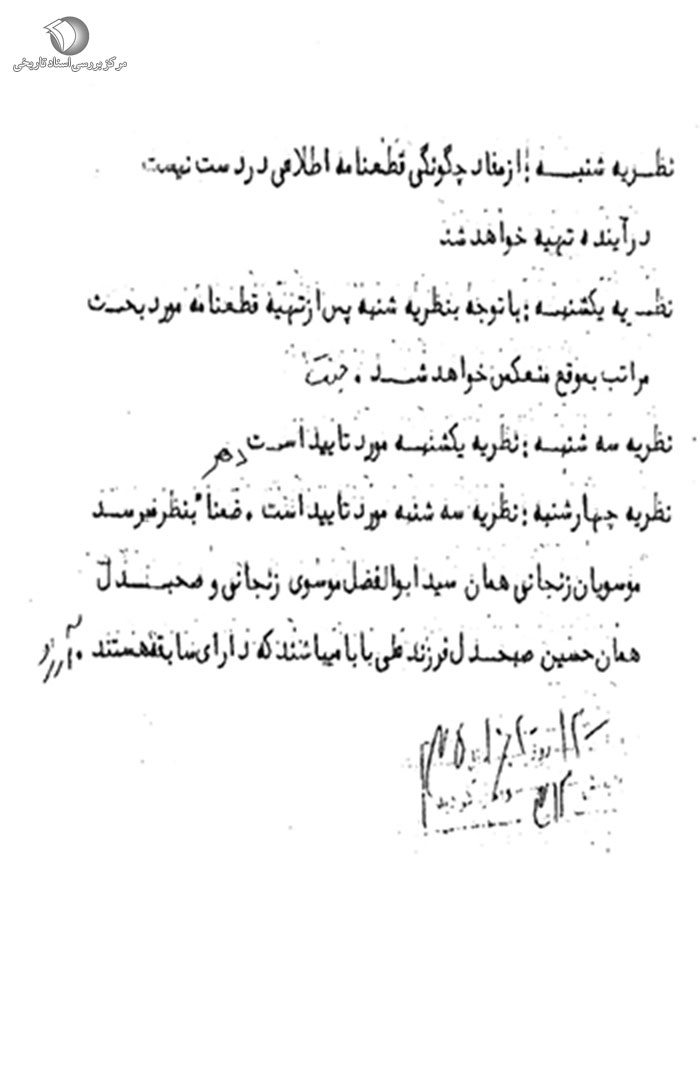 مرکز بررسی اسناد تاریخی
نظریه شنبه : از مفاد چگونگی قطعنامه اطلاعی در دست نیست
در آینده تهیه خواهد شد
نظریه یکشنبه : با توجه بنظریه شنبه پس از تهیه قطعنامه مورد بحث
مراتب بموقع منعکس خواهد شد .
نظریه سه شنبه : نظریه یکشنبه مورد تایید است
نظریه چهارشنبه : نظریه سه شنبه مورد تایید است . ضمنا" بنظر میرسد
موسویان زنجانی همان سید ابوالفضل موسوی زنجانی و صحبندل
همان حسین صبحدل فرزند علی بابا میباشند که دارای سابقه هستند .